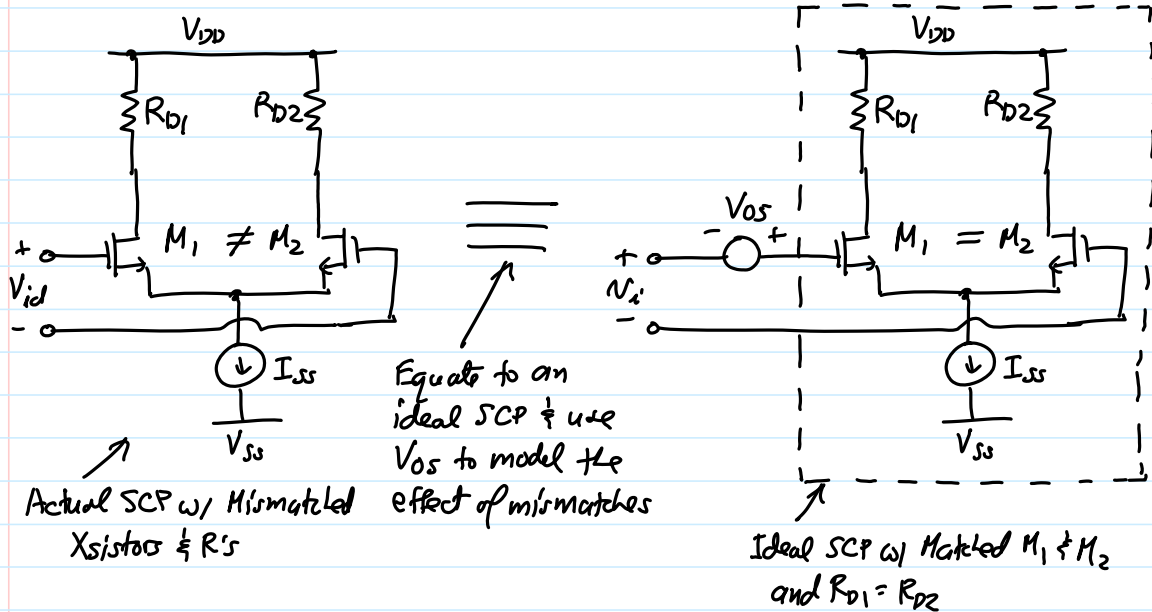 V_DD
R_D1
R_D2
M_1 ≠ M_2
+
V_id
-
I_SS
V_SS
Actual SCP w/ Mismatched
Xsistors & R's
Equate to an
ideal SCP & use
V_OS to model the
effect of mismatches
V_DD
R_D1
R_D2
V_OS
- +
M_1 = M_2
+
v_i
-
I_SS
V_SS
Ideal SCP w/ Matched M_1 & M_2
and R_D1 = R_D2